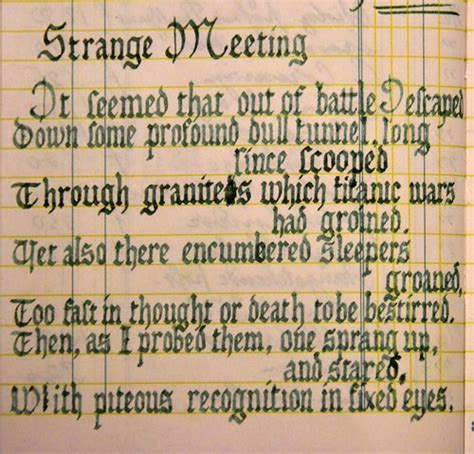 Strange Meeting
It seemed that out of battle I escaped
Down some profound dull tunnel, long
since scooped
Through granites which titanic wars
had groined.
Yet also there encumbered sleepers
groaned,
Too fast in thought or death to be bestirred.
Then, as I probed them, one sprang up,
and stared,
With piteous recognition in fixed eyes.